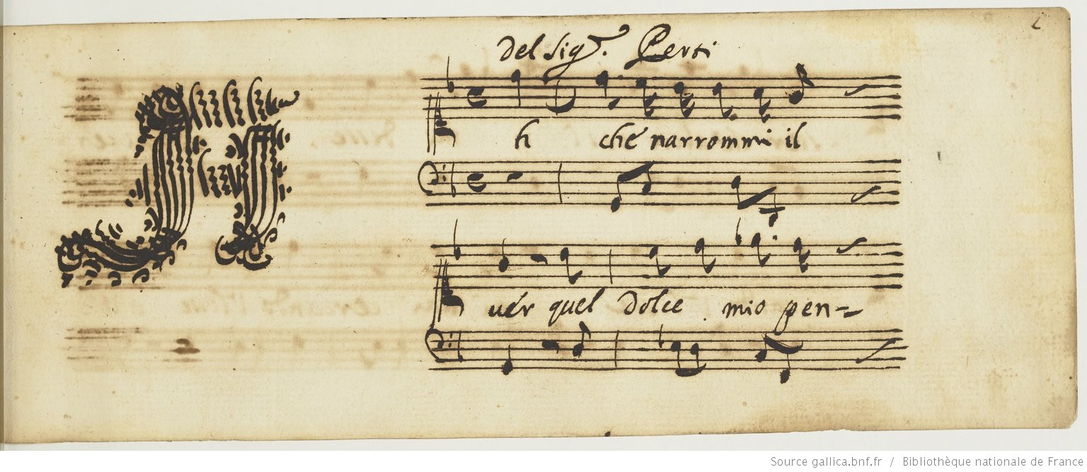 2
del Sig.r Perti
A
ti che narrommi il
ver quel dolce mio pen-
Source gallica.bnf.fr / Bibliothèque nationale de France